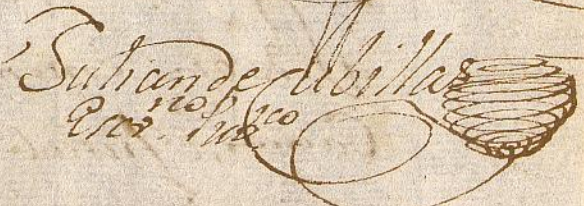 Julian de Ubillas
Escr.no pu.co